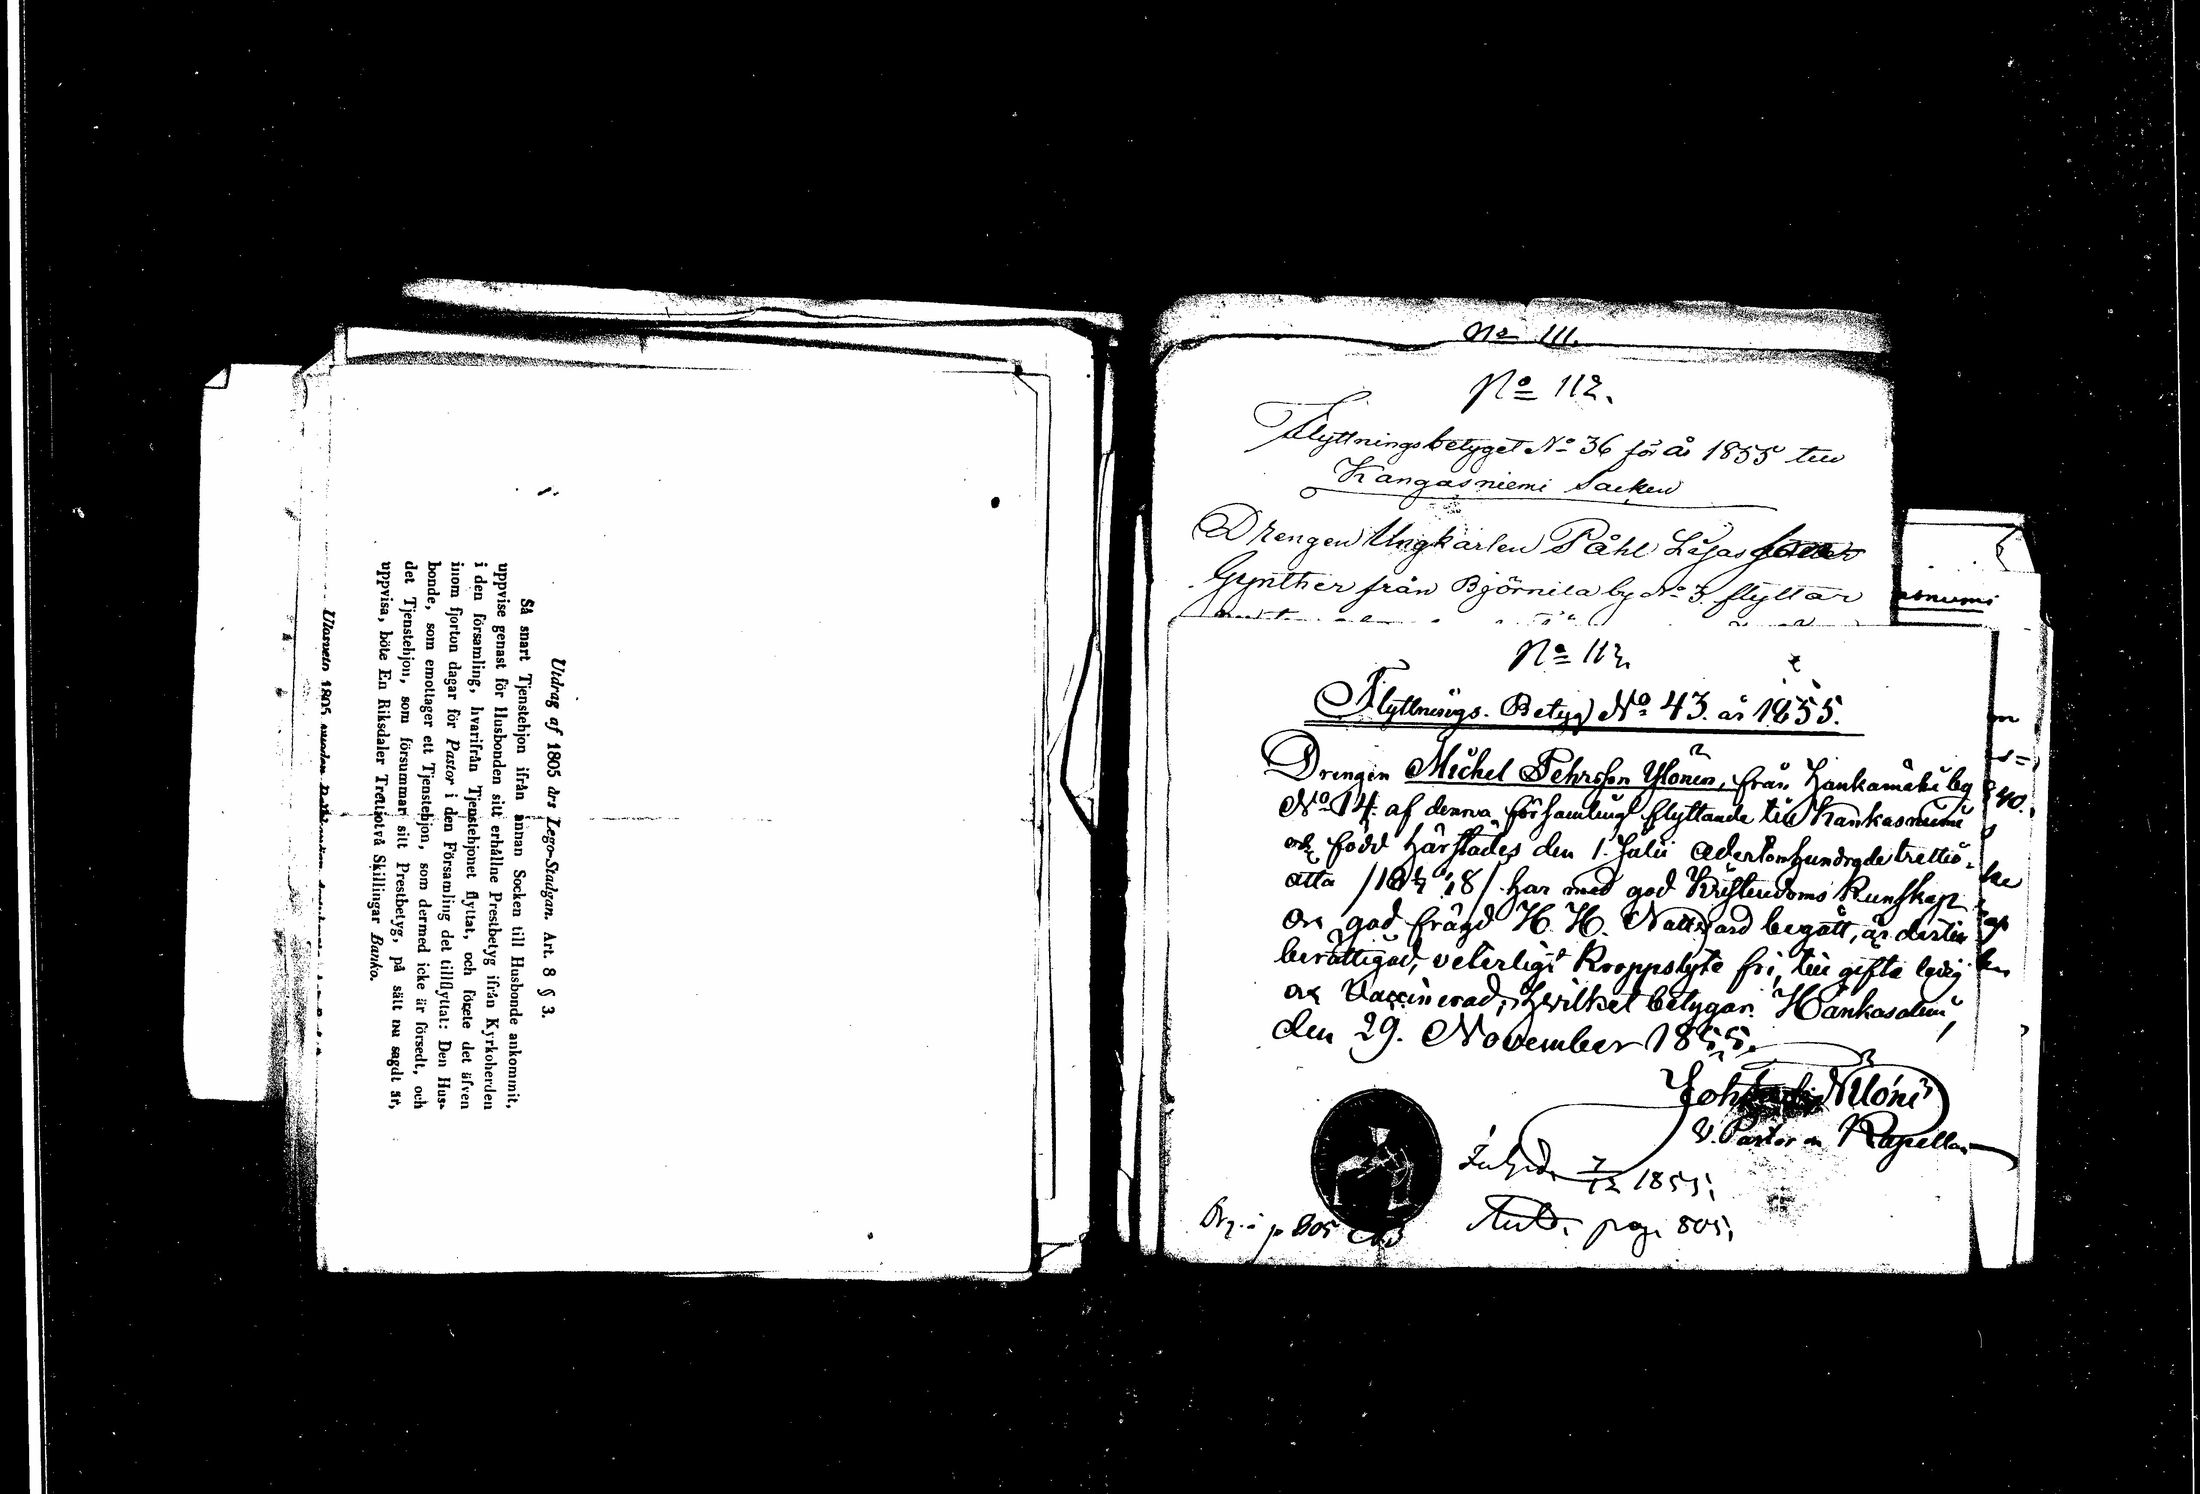 Utdrag af 1805 års Lego-Stadgan. Art. 8 § 3.
Så snart Tjenstehjon ifrån annan Socken till Husbonde ankommit,
uppvise genast för Husbonden sitt erhållne Prestbetyg ifrån Kyrkoherden
i den församling, hvarifrån Tjenstehjonet flyttat, och förete det äfven
inom fjorton dagar för Pastor i den Församling det tillflyttat: Den Hus-
bonde, som emottager ett Tjenstehjon, som dermed icke är försedt, och
det Tjenstehjon, som försummar sitt Prestbetyg, på sätt nu sagdt är,
uppvisa, böte En Riksdaler Trettiotvå Skillingar Banko.
No 111.
No 112.
Flyttningsbetyget No 36 för år 1855 till
Kangasniemi Socken
Drengen Ungkarlen Påhl
Gynther från Björnila by No 3. flyttar
No 113.
Flyttnings-Betyg No 43. år 1855.
Drengen Michel Pehrsson Ylönen, från Hankamäki by
No 14. af denna församling flyttande till Kankasniemi
och född härstädes den 1. Julii Adertonhundradetrettio-
åtta har med god Kristendoms Kunskap
och god frägd H. H. Nattvard begått, är dertill
berättigad, veterligt Kroppslyte fri, till gifte ledig
och Vaccinerad; Hvilket betygar. Hankasalmi,
den 29. November 1855.
V. Pastor Kapellan
7/12 1855.
pag. 805.
p 805